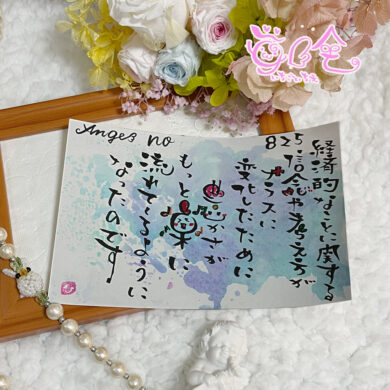 Anges no
825
経済的なことに関する
信念や考え方が
プラスに
変化したために
豊かさが
もっと楽に
流れてくるように
なったのです